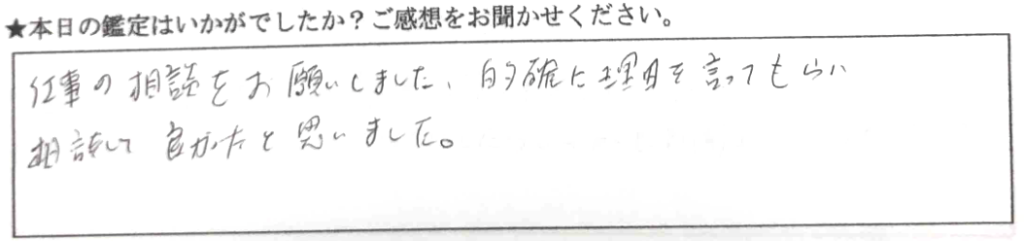 ★本日の鑑定はいかがでしたか？ご感想をお聞かせください。
仕事の相談をお願いしました、的確に理由を言ってもらい
相談して良かったと思いました。